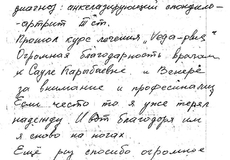 диагноз: анкелазирующий спондило-
артрит III ст.
Прошол курс лечения „Vega-plus"
Огромная благодарность врачам
к Сауле Каропбаевне и Венере
за внимание и професионализ
Если честно то я уже терял
надежду. И вот благодаря им
я снова на ногах.
Ещё раз спасибо огромное